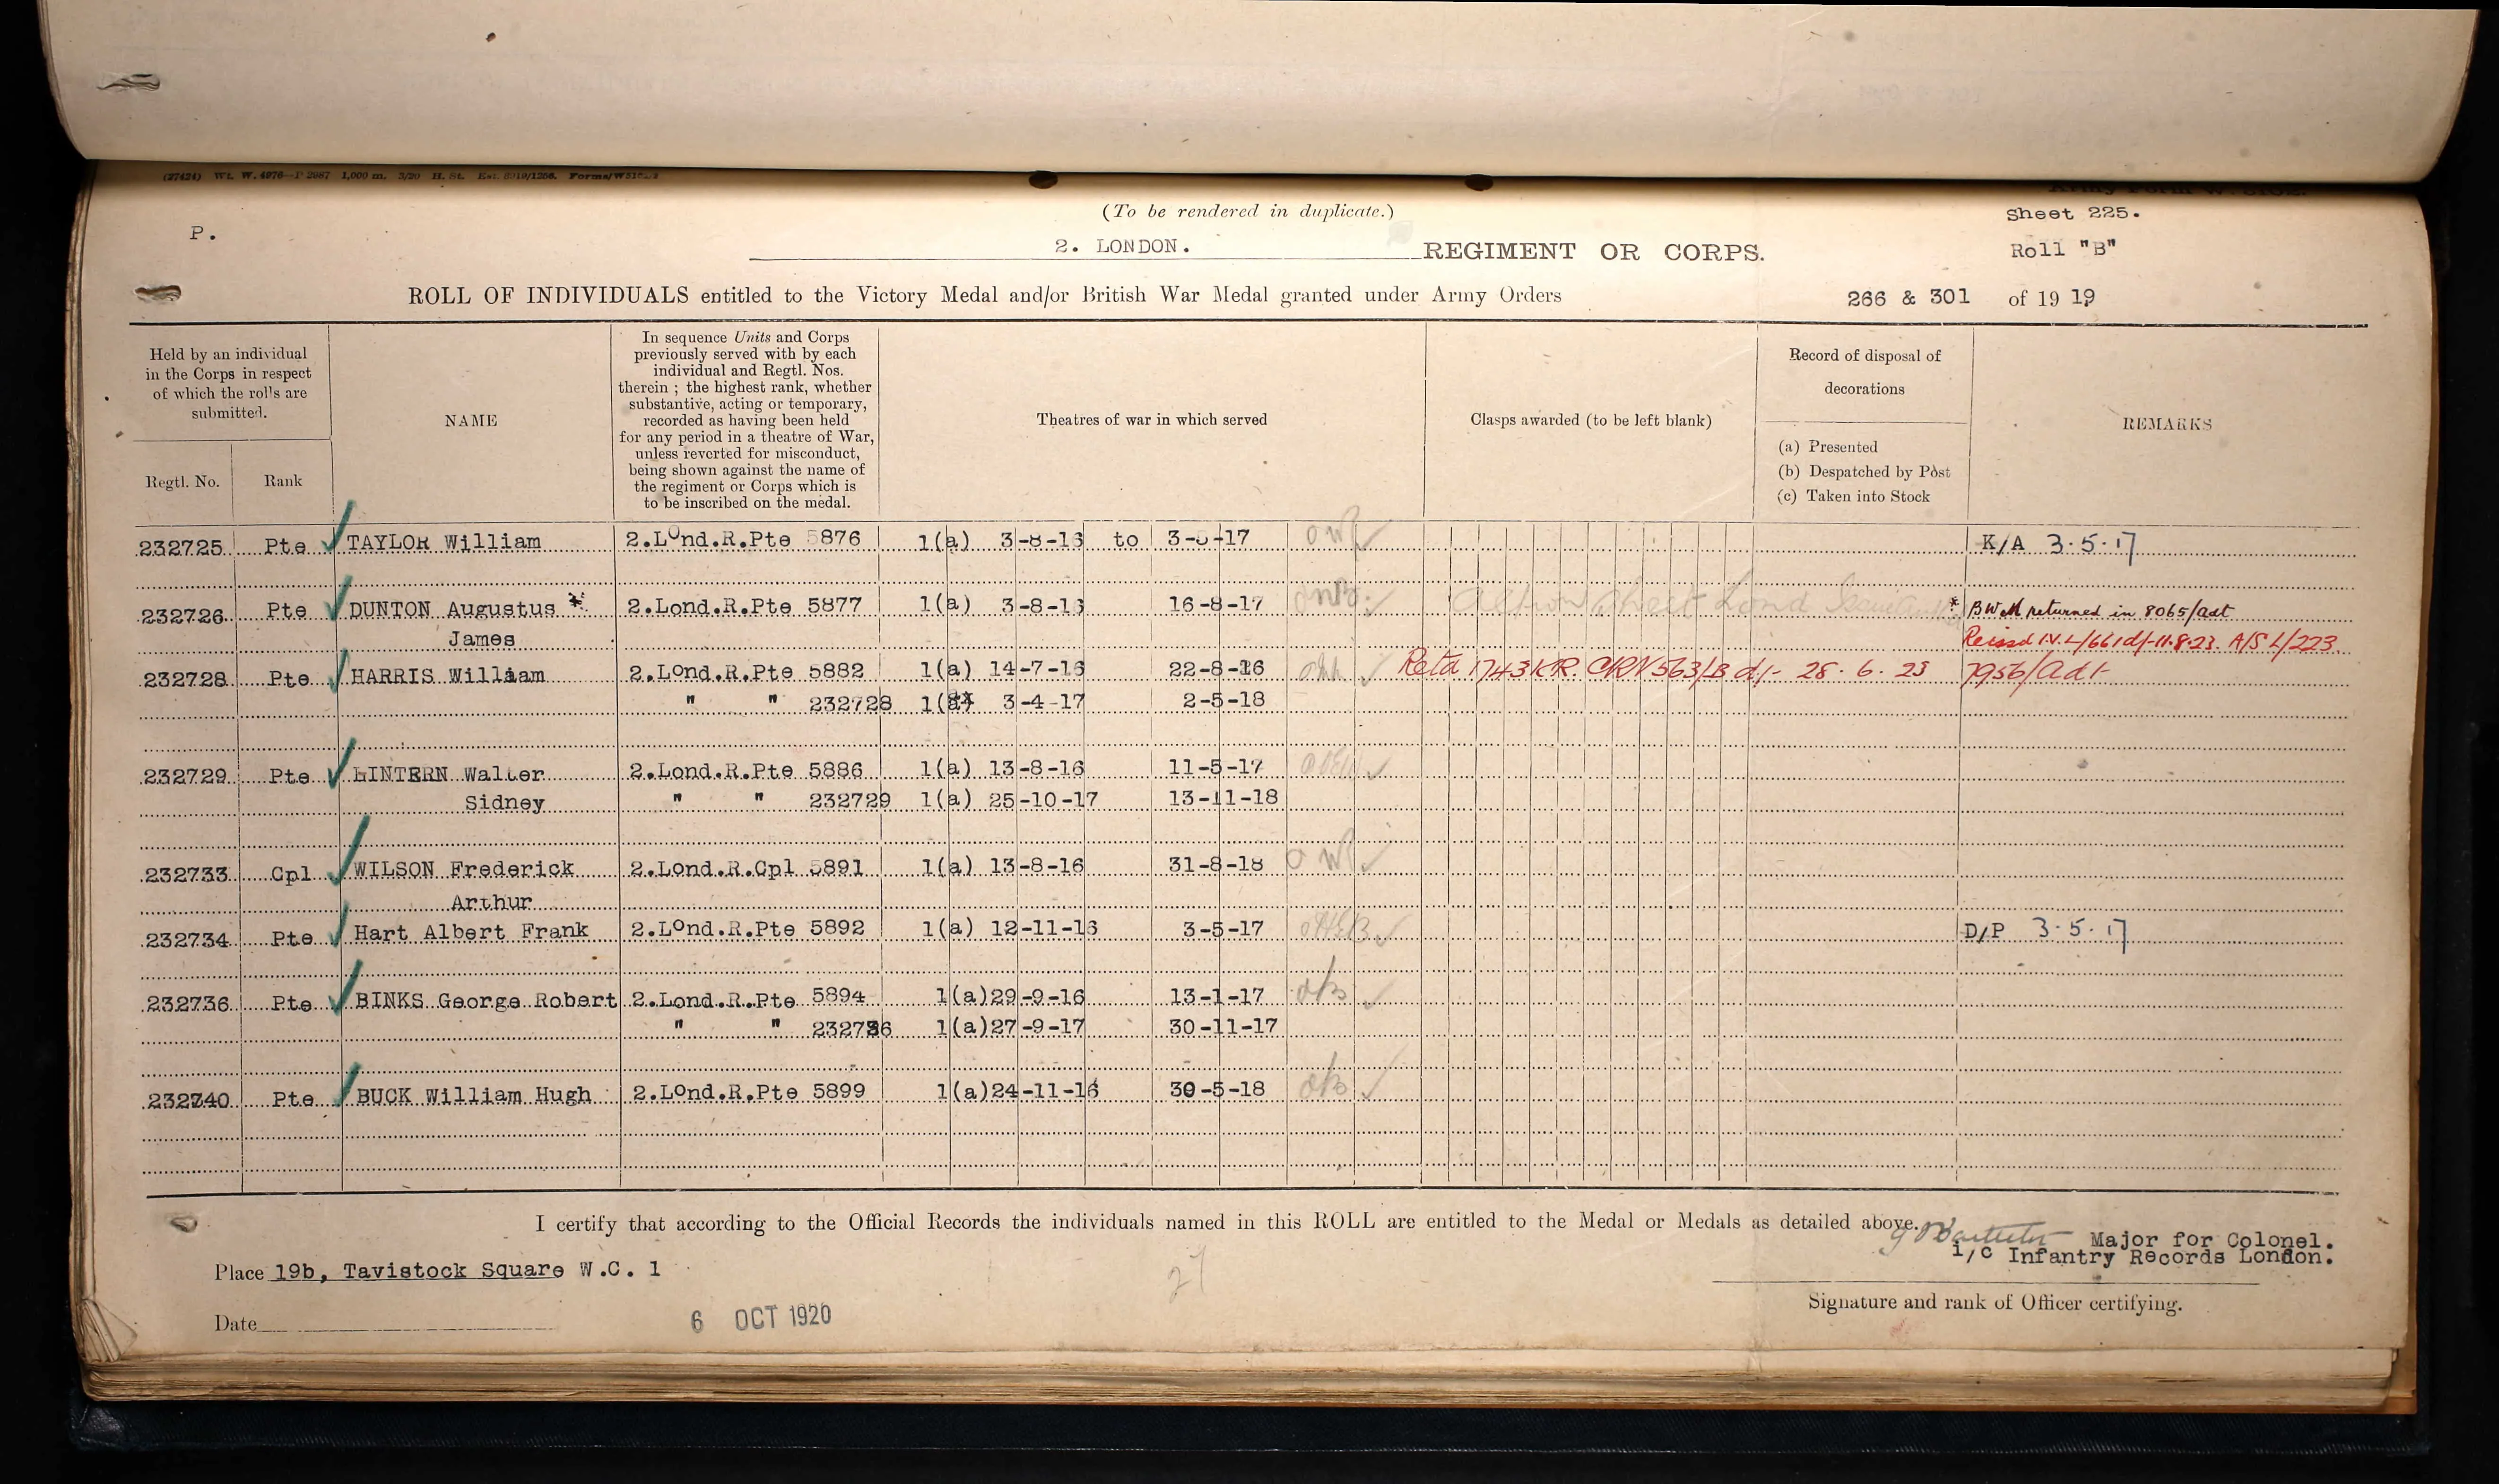 (27424) Wt. W. 4976— P 2987 1,000 m. 3/20 H. St.
(To be rendered in duplicate.)
Sheet 225.
P.
2. LONDON. REGIMENT OR CORPS.
Roll "B"
ROLL OF INDIVIDUALS entitled to the Victory Medal and/or British War Medal granted under Army Orders 266 & 301 of 19 19
Held by an individual
in the Corps in respect
of which the rolls are
submitted.
Regtl. No.
Rank
NAME
In sequence Units and Corps
previously served with by each
individual and Regtl. Nos.
therein ; the highest rank, whether
substantive, acting or temporary,
recorded as having been held
for any period in a theatre of War,
unless reverted for misconduct,
being shown against the name of
the regiment or Corps which is
to be inscribed on the medal.
Theatres of war in which served
Clasps awarded (to be left blank)
Record of disposal of
decorations
(a) Presented
(b) Despatched by Post
(c) Taken into Stock
REMARKS
232725 Pte TAYLOR William 2.Lond.R.Pte 5876 1(a) 3-8-16 to 3-5-17 K/A 3.5.17
232726 Pte DUNTON Augustus * 2.Lond.R.Pte 5877 1(a) 3-8-16 16-8-17 * BWM returned in 8065/adt
James A/S L/223
232728 Pte HARRIS William 2.Lond.R.Pte 5882 1(a) 14-7-16 22-8-16 Retd 1743 KR. CRV 563/B d/- 28.6.23 7956/Adt
" " 232728 1(a) 3-4-17 2-5-18
232729 Pte HINTERN Walter 2.Lond.R.Pte 5886 1(a) 13-8-16 11-5-17
Sidney " " 232729 1(a) 25-10-17 13-11-18
232733 Cpl WILSON Frederick 2.Lond.R.Cpl 5891 1(a) 13-8-16 31-8-18
Arthur
232734 Pte Hart Albert Frank 2.Lond.R.Pte 5892 1(a) 12-11-16 3-5-17 D/P 3.5.17
232736 Pte BINKS George Robert 2.Lond.R.Pte 5894 1(a)29-9-16 13-1-17
" " 232736 1(a)27-9-17 30-11-17
232740 Pte BUCK William Hugh 2.Lond.R.Pte 5899 1(a)24-11-16 30-5-18
I certify that according to the Official Records the individuals named in this ROLL are entitled to the Medal or Medals as detailed above.
Major for Colonel.
i/c Infantry Records London.
Place 19b, Tavistock Square W.C. 1
Signature and rank of Officer certifying.
Date 6 OCT 1920